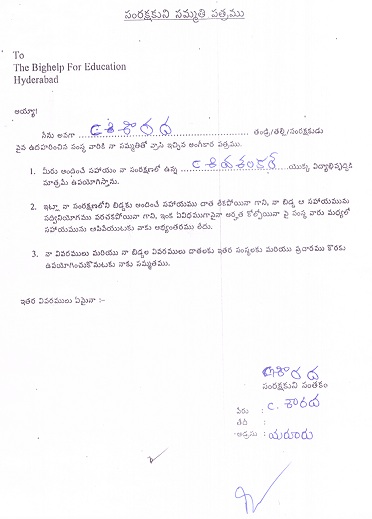 సంరక్షకుని సమ్మతి పత్రము
To
The Bighelp For Education
Hyderabad
అయ్యా!
నేను అనగా C శారద తండ్రి/తల్లి/సంరక్షకుడు
పైన ఉదహరించిన సంస్థ వారికి నా సమ్మతితో వ్రాసి ఇచ్చిన అంగీకార పత్రము.
1. మీరు అందించే సహాయం నా సంరక్షణలో ఉన్న C యొక్క విద్యాభివృద్ధికి
మాత్రమే ఉపయోగిస్తాను.
2. ఇట్లా నా సంరక్షణలోని బిడ్డకు అందించే సహాయము దాత లేకపోయినా గాని, నా బిడ్డ ఆ సహాయమును
సద్వినియోగము పరచకపోయినా గాని, ఇంక ఏవిధముగానైనా అర్హత కోల్పోయినా పై సంస్థ వారు మధ్యలో
సహాయమును ఆపివేయుటకు నాకు అభ్యంతరము లేదు.
3. నా వివరములు మరియు నా బిడ్డల వివరములు దాతలకు ఇతర సంస్థలకు మరియు ప్రచారము కొరకు
ఉపయోగించుకొనుటకు నాకు సమ్మతము.
ఇతర వివరములు ఏమైనా :-
C శారద
సంరక్షకుని సంతకం
పేరు : C. శారద
తేది :
అడ్రసు :